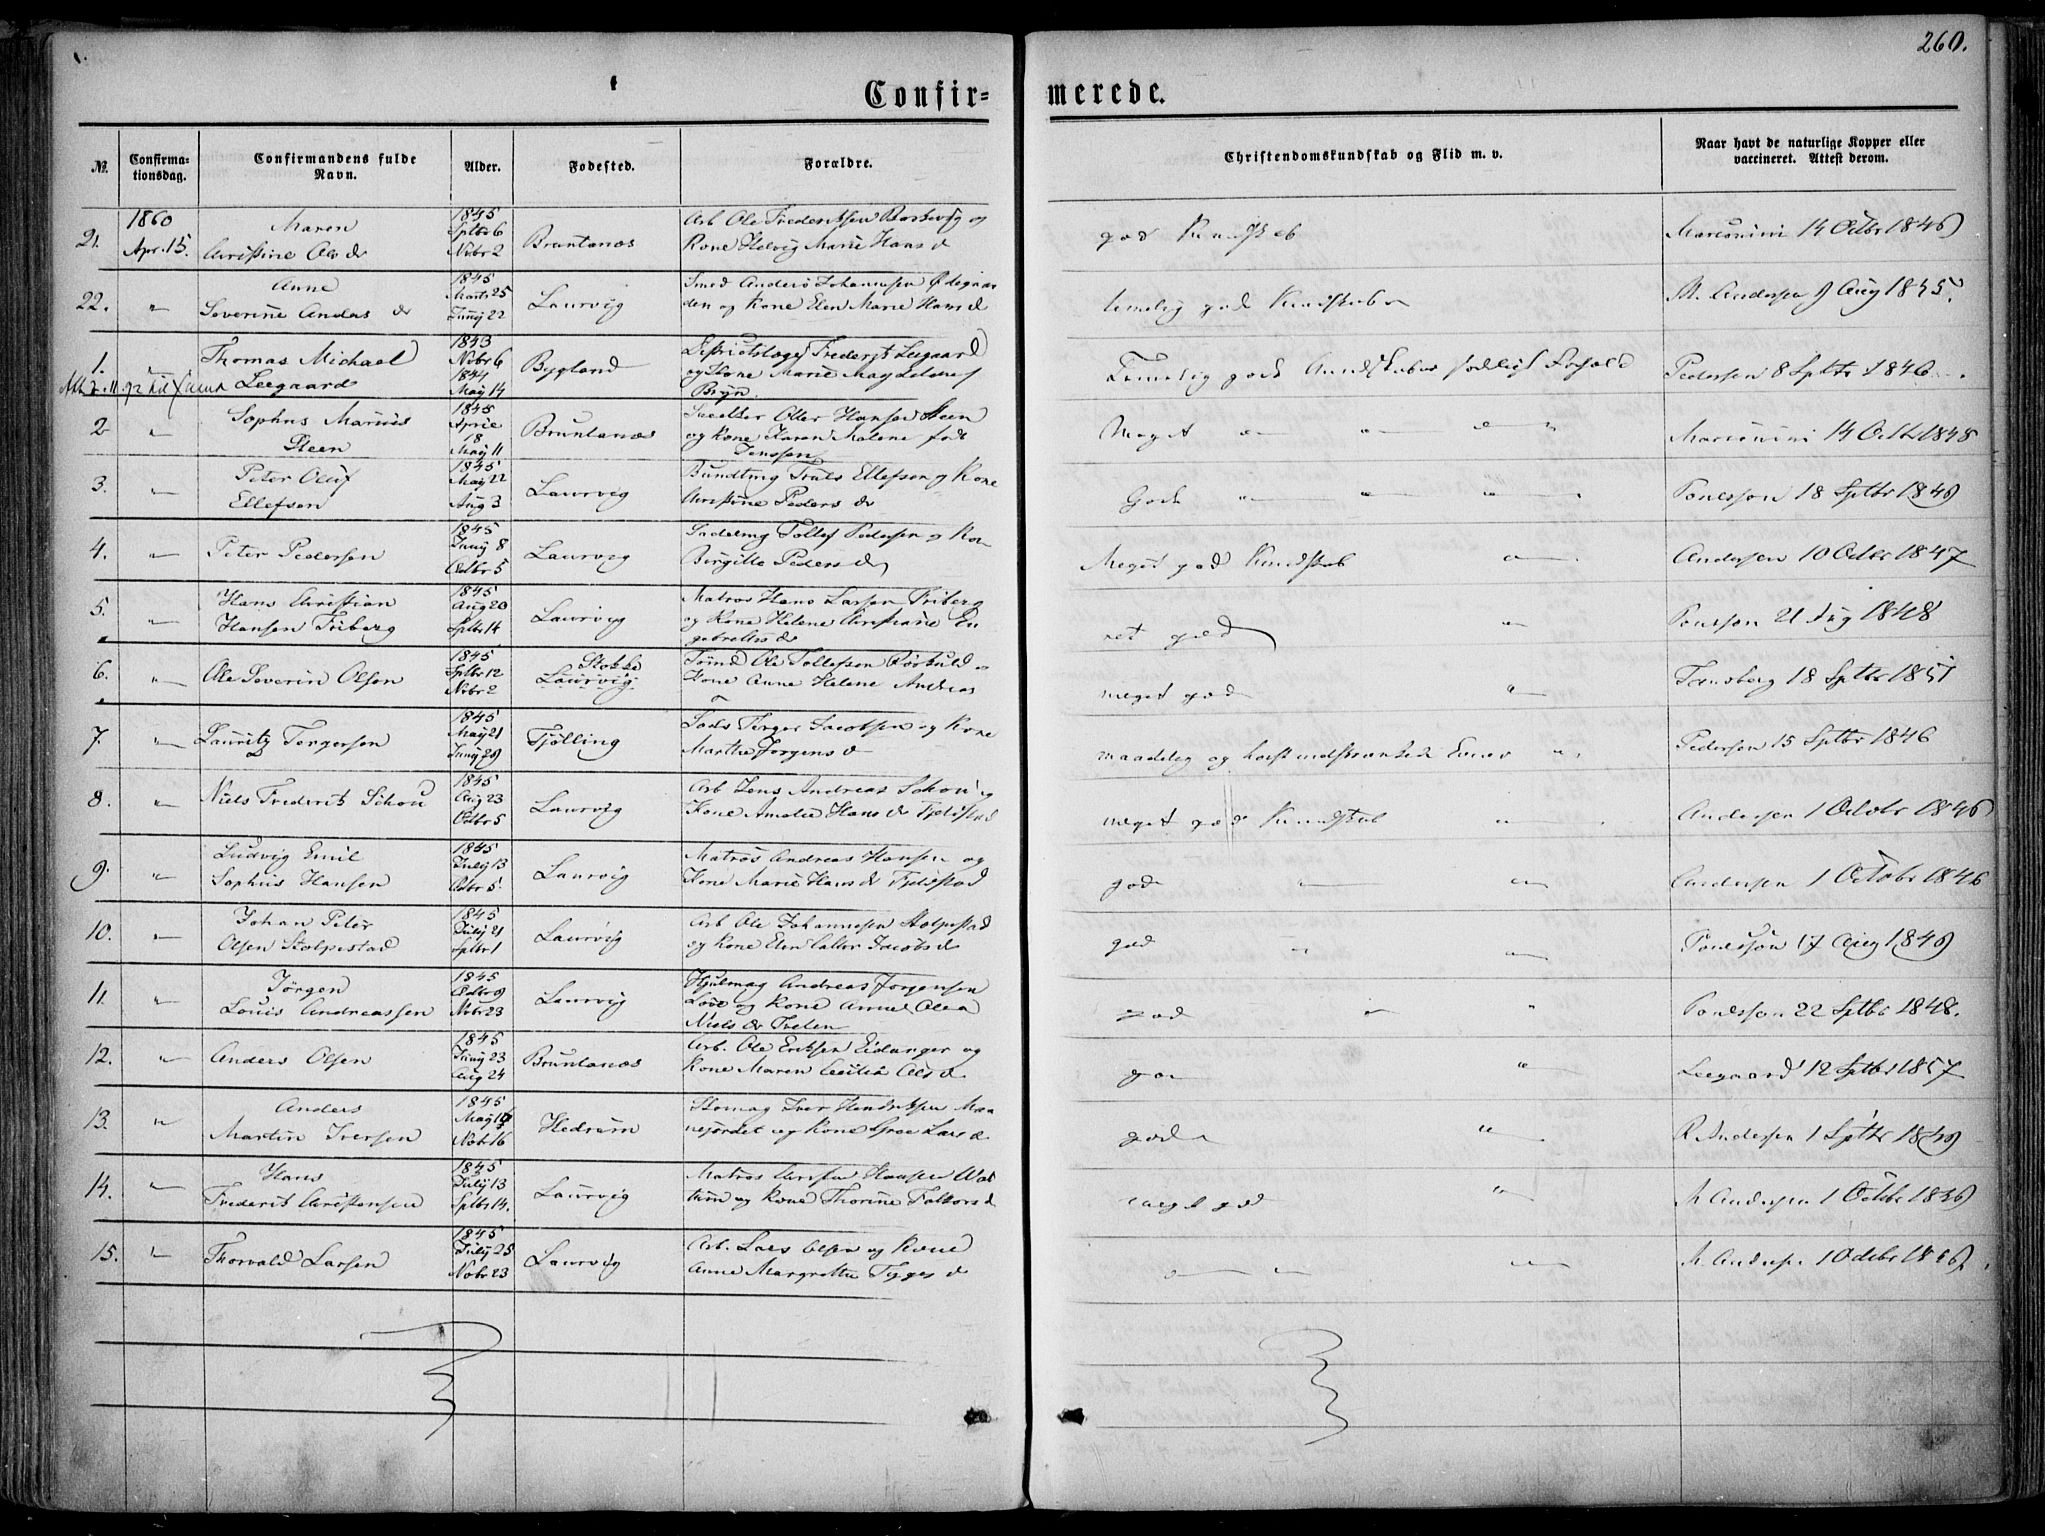 260.
Confir=
merede.
№.
Confirma-
tionsdag.
Confirmandens fulde
Navn.
Alder.
Fodested.
Forældre.
Christendomskundskab og Flid m. v.
Naar havt de naturlige Kopper eller
vaccineret. Attest derom.
1860
21. Apr. 15. Maren
Christine Ols d
1845
Sptbr 6
Nvbr 2
Bruntanæs
Arb Ole Frederiksen
Kone Helvig Marie Hans d
god Kundskab
14 Octbr 1846
22. " Anne
Severine Anders d
1845
Marts 25
Juny 22
Laurvig
Smed Anders Johannesen Ødegaar
den og Kone Elen Marie Hans d
temelig god Kundskaber
M. Andersen 9 Aug 1845.
1. " Thomas Michael
Leegaard
1843
Nvbr 6
1844
May 14
Bygland
Districtslæge Frederik Leegaard
og Kone Marie Magdalene f
Bryn.
Temelig gode Kundskaber
Pedersen 8 Sptbr 1846
2 " Sophus Marius
Steen
1845
April
18
May 11
Bruntanæs
Hansen Steen
og Kone Karen Malene født
Jenssen
Meget " " "
14 Octb 1848
3. " Peter Oluf
Ellefsen
1845
May 22
Aug 3
Laurvig
Bundtmg Truls Ellefsen og Kone
Christine Peders d
Gode " " "
18 Sptbr 1849
4. " Peter Pedersen
1845
Juny 8
Octbr 5
Laurvig
Sadelmg Tollef Pedersen og Kone
Birgitte Peders d
Meget god Kundskab "
Andersen 10 Octbr 1847
5. " Hans Christian
Hansen Friberg
1845
Aug 20
Sptbr 14
Laurvig
Matros Hans Larsen Friberg
og Kone Helene Christiane En
gebrets d
ret god "
21 Aug 1848
6. " Ole Severin Olsen
1845
Sptbr 12
Nvbr 2
Stokke
Laurvig
Ole Tollefsen
Kone Anne Helene Andreas
meget god "
Tønsberg 18 Sptbr 1851
7. " Lauritz Torgersen
1845
May 21
Juny 29
Tjølling
Torger Jacobsen og Kone
Marthe Jørgens d
maadelig og
Pedersen 15 Sptbr 1846
8. " Niels Frederik Schou
1845
Aug 23
Octbr 5
Laurvig
Arb Jens Andreas Schou og
Kone Amalie Hans d Fjeldstad
meget god Kundskab "
Andersen 1 Octobr 1846
9. " Ludvig Emil
Sophus Hansen
1845
July 13
Octbr 5.
Laurvig
Matros Andreas Hansen og
Kone Marie Hans d Fjeldstad
god " "
Andersen 1 Octobr 1846
10. " Johan Peter
Olsen Stolpestad
1845
July 21
Sptbr 1
Laurvig
Arb Ole Johannesen Stolpestad
og Kone Elen Jacobs d
god " "
17 Aug 1849
11. " Jörgen
Louis Andreassen
1845
Octbr 9
Nvbr 23
Laurvig
Hjulmag Andreas Jorgensen
Love og Kone Anne Olea
Niels d
god " "
22 Sptbr 1848.
12. " Anders Olsen
1845
Juny 23
Aug 24
Bruntanæs
Arb. Ole Eriksen Eidanger og
Kone Maren Cecilia Ols d
god "
Leegaard 12 Sptbr 1857
13. " Anders
Martin Iversen
1845
May
Nvbr 16
Hedrum
Skomag Iver Hendriksen
og Kone Lars d
god "
R. Andersen 1 Sptbr 1849
14. " Hans
Frederik Christensen
1845
July 13
Sptbr 14.
Laurvig
Matros Hansen
og Kone Thorine d
meget god "
M Andersen 1 Octbr 1846
15. " Thorvald Larsen
1845
July 25
Nvbr 23
Laurvig
Arb. Lars Olsen og Kone
Anne Margrethe d
" " "
M. Anders. 1 Octbr 1846